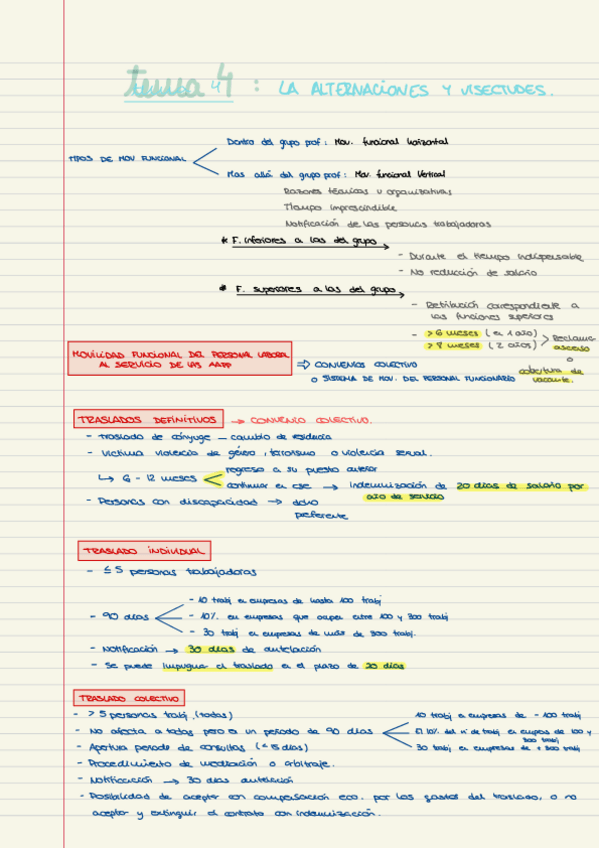 tema 4 : LA ALTERNACIONES Y VISECTUDES.
Dentro del grupo prof: Mov. funcional horizontal
TIPOS DE MOV FUNCIONAL
Mas allá del grupo prof: Mov. funcional Vertical
Razones técnicas u organizativas
Tiempo imprescindible
Notificación de las personas trabajadoras
* F. inferiores a las del grupo
- Durante el tiempo indispensable
- No reducción de salario
* F. superiores a las del grupo
- Retribución correspondiente a
las funciones superiores
- > 6 meses (en 1 año)
> 8 meses (2 años)
Reclama
ascenso
o
cobertura de
vacante.
MOVILIDAD FUNCIONAL DEL PERSONAL LABORAL
AL SERVICIO DE LAS AAPP
⇒ CONVENIOS COLECTIVO
o SISTEMA DE MOV. DEL PERSONAL FUNCIONARIO
TRASLADOS DEFINITIVOS → CONVENIO COLECTIVO.
- traslado de cónyuge – cambio de residencia
- Victima violencia de género, terrorismo o violencia sexual.
↳ 6 - 12 meses
regreso a su puesto anterior
continuar en ese → indemnización de 20 días de salario por
año de servicio
- Personas con discapacidad → dcho
preferente
TRASLADO INDIVIDUAL
- ≤ 5 personas trabajadoras
- 90 días
- 10 trabj en empresas de hasta 100 trabj
- 10% en empresas que ocupen entre 100 y 300 trabj
- 30 trabj en empresas de más de 300 trabj.
- Notificación → 30 días de antelación
- Se puede impugnar el traslado en el plazo de 20 días
TRASLADO COLECTIVO
- > 5 personas trabj. (todas)
- No afecta a todas pero en un periodo de 90 días
10 trabj en empresas de - 100 trabj
El 10% del nº de trabj en empresas de 100 y
300 trabj
30 trabj en empresas de + 300 trabj
- Apertura periodo de consultas (< 15 días)
- Procedimiento de mediación o arbitraje.
- Notificación → 30 días antelación
- Posibilidad de aceptar con compensación eco. por los gastos del traslado, o no
aceptar y extinguir el contrato con indemnización.